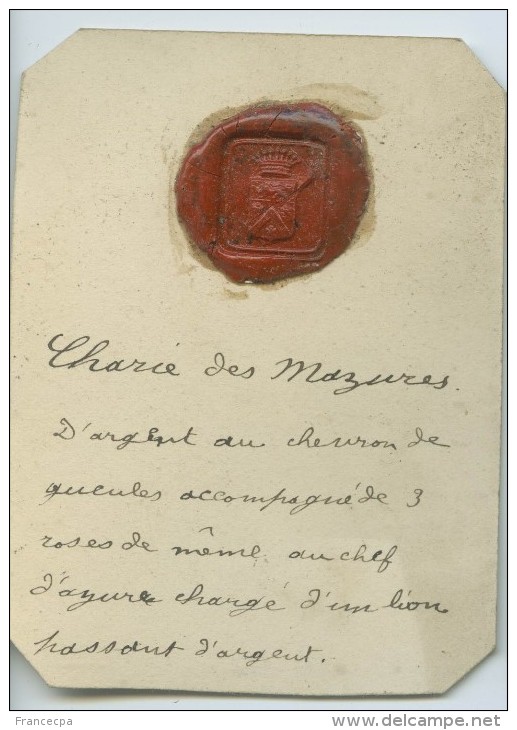 Charie des Mazures.
D'argent au chevron de
gueules accompagné de 3
roses de même au chef
d'azure chargé d'un lion
passant d'argent.
Francecpa
www.delcampe.net